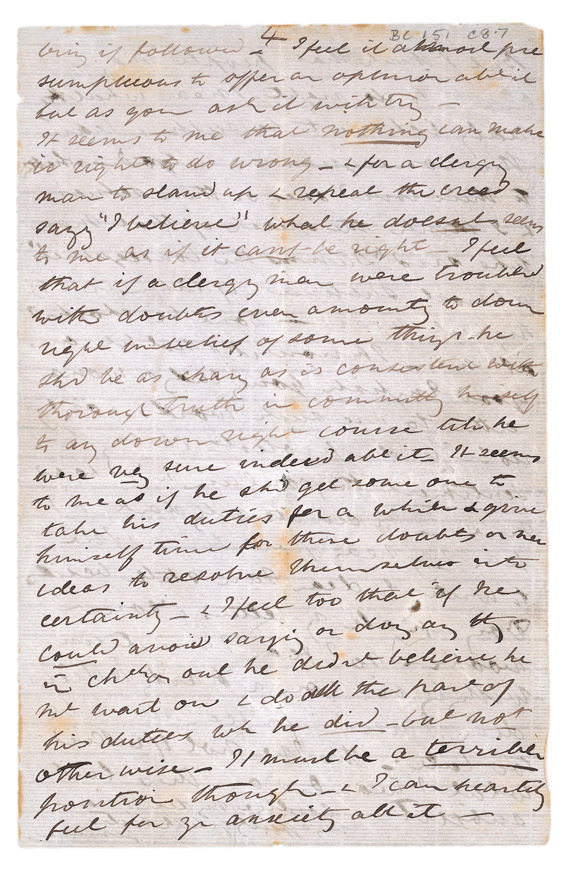 4
BC 151 C8.7
bring if followed – I feel it almost pre
sumptuous to offer an opinion abt it
but as you ask it will try –
It seems to me that nothing can make
it right to do wrong – & for a clergy
man to stand up & repeat the creed –
sayg "I believe" what he doesnt seems
to me as if it cant be right – I feel
that if a clergyman were troubled
with doubts even amountg to down
right unbelief of some things he
shd be as chary as is consistent with
thorough truth in committg himself
to any down right course till he
were very sure indeed abt it – It seems
to me as if he shd get some one to
take his duties for a while & give
himself time for these doubts or new
ideas to resolve themselves into
certainty – & I feel too that if he
could avoid sayig or doig any thg
in chch or out he didnt believe he
mt wait on & do all the part of
his duties wh he did – but not
otherwise – It must be a terrible
position though – & I can heartily
feel for yr anxiety abt it –